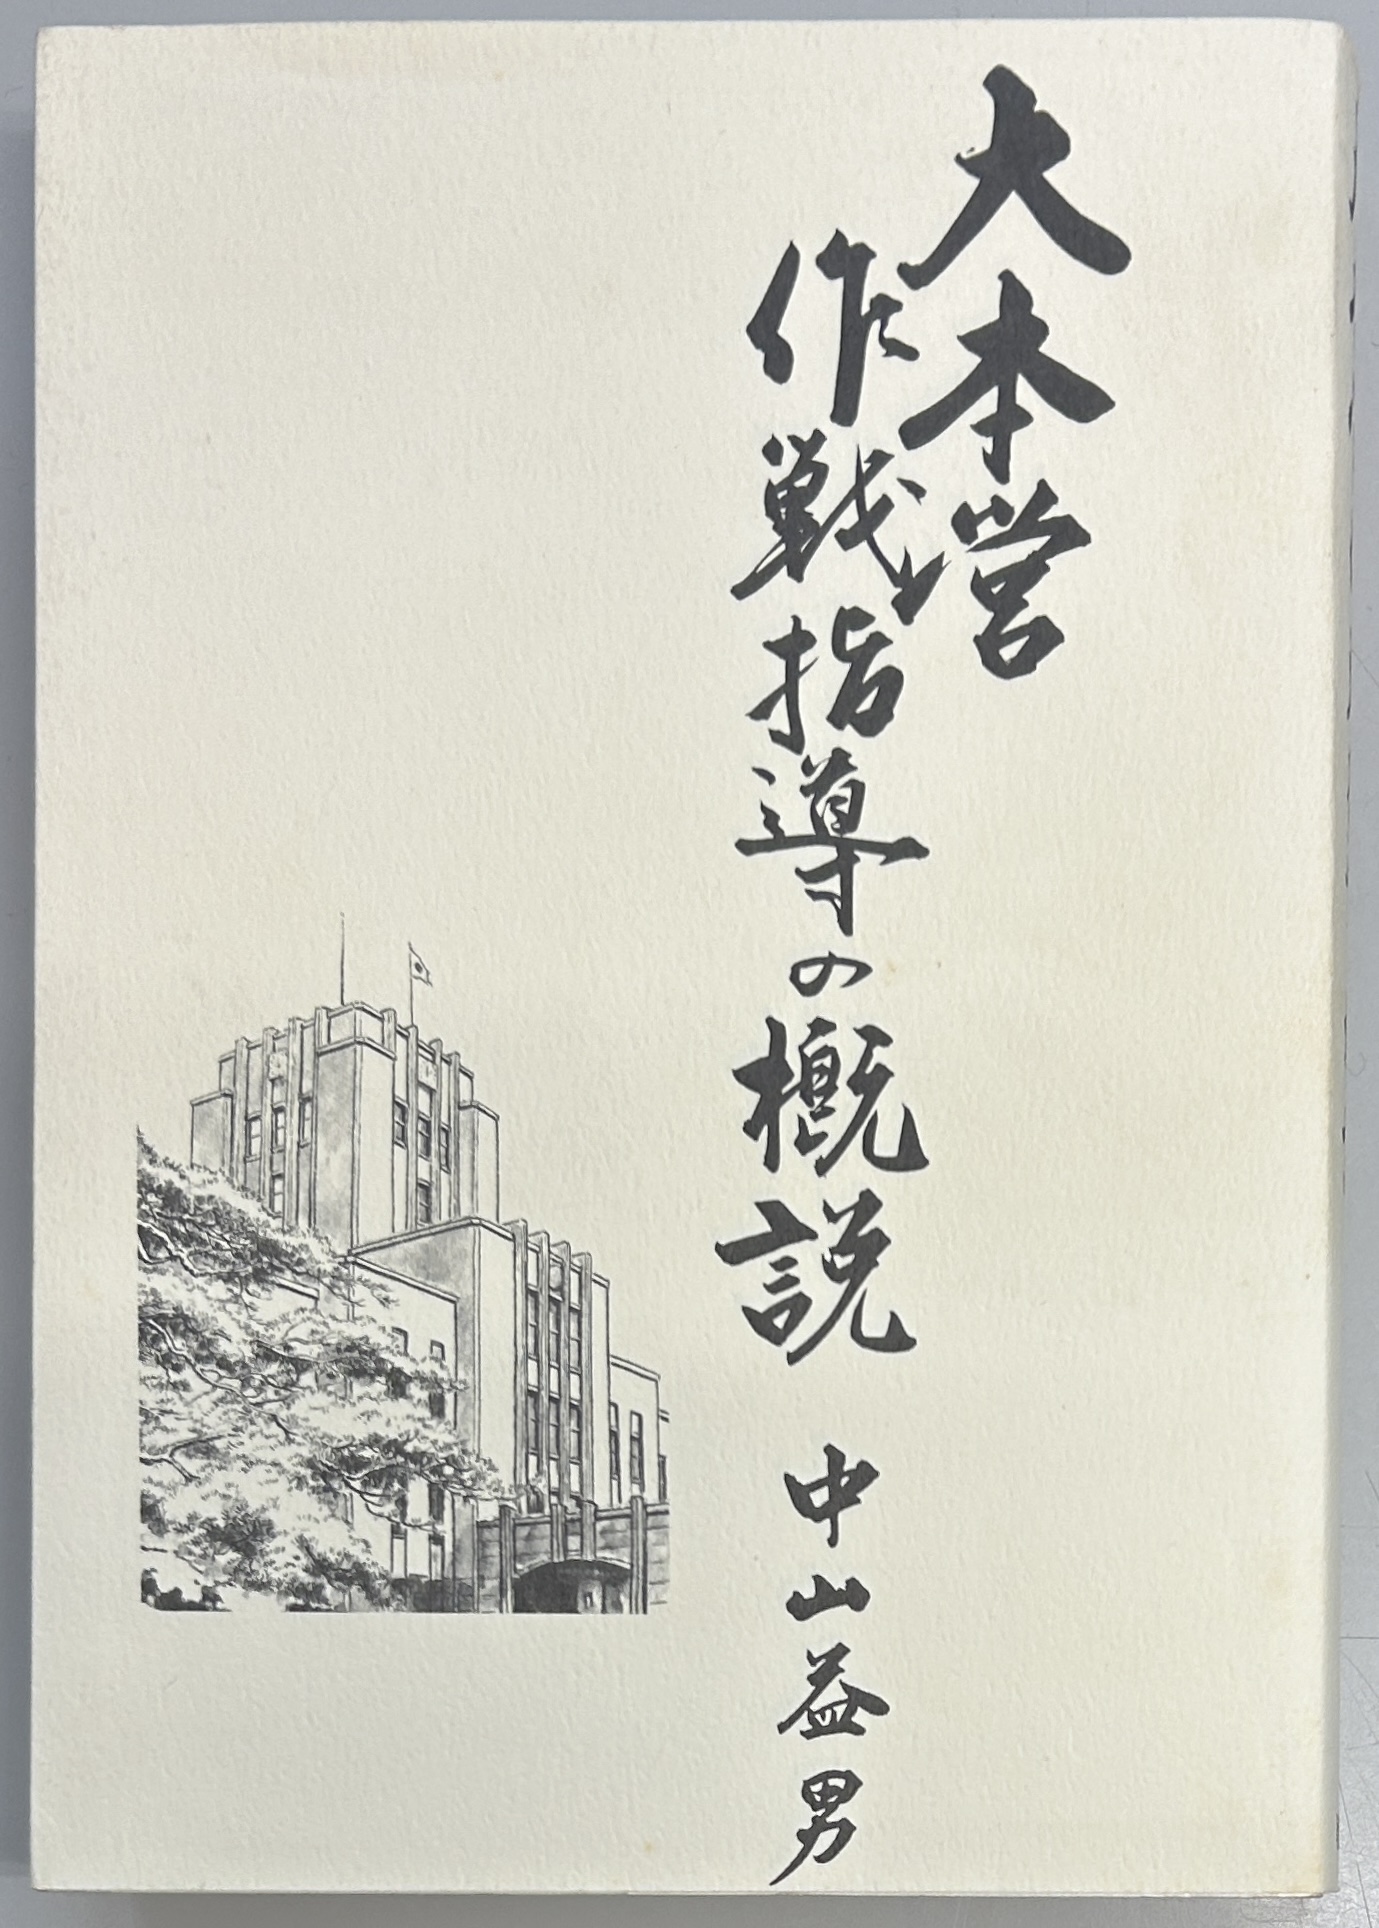 大本営
作戦指導の概説
中山益男